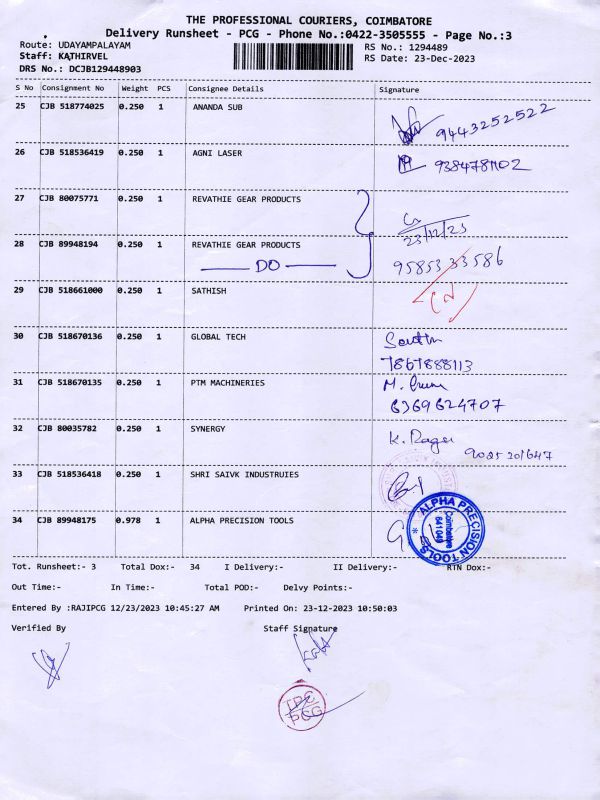 THE PROFESSIONAL COURIERS, COIMBATORE
Delivery Runsheet - PCG - Phone No.:0422-3505555 - Page No.:3
Route: UDAYAMPALAYAM RS No.: 1294489
Staff: KATHIRVEL RS Date: 23-Dec-2023
DRS No.: DCJB129448903
S No Consignment No Weight PCS Consignee Details Signature
25 CJB 518774025 0.250 1 ANANDA SUB 9443252522
26 CJB 518536419 0.250 1 AGNI LASER
27 CJB 80075771 0.250 1 REVATHIE GEAR PRODUCTS 23/12/23
28 CJB 89948194 0.250 1 REVATHIE GEAR PRODUCTS 9585333586
DO
29 CJB 518661000 0.250 1 SATHISH
30 CJB 518670136 0.250 1 GLOBAL TECH
7867888113
31 CJB 518670135 0.250 1 PTM MACHINERIES M.
6369624707
32 CJB 80035782 0.250 1 SYNERGY K. 9025201647
33 CJB 518536418 0.250 1 SHRI SAIVK INDUSTRUIES
34 CJB 89948175 0.978 1 ALPHA PRECISION TOOLS
ALPHA PRECISION TOOLS
Coimbatore
Tot. Runsheet:- 3 Total Dox:- 34 I Delivery:- II Delivery:- RTN Dox:-
Out Time:- In Time:- Total POD:- Delvy Points:-
Entered By :RAJIPCG 12/23/2023 10:45:27 AM Printed On: 23-12-2023 10:50:03
Verified By Staff Signature
TPC
PCG